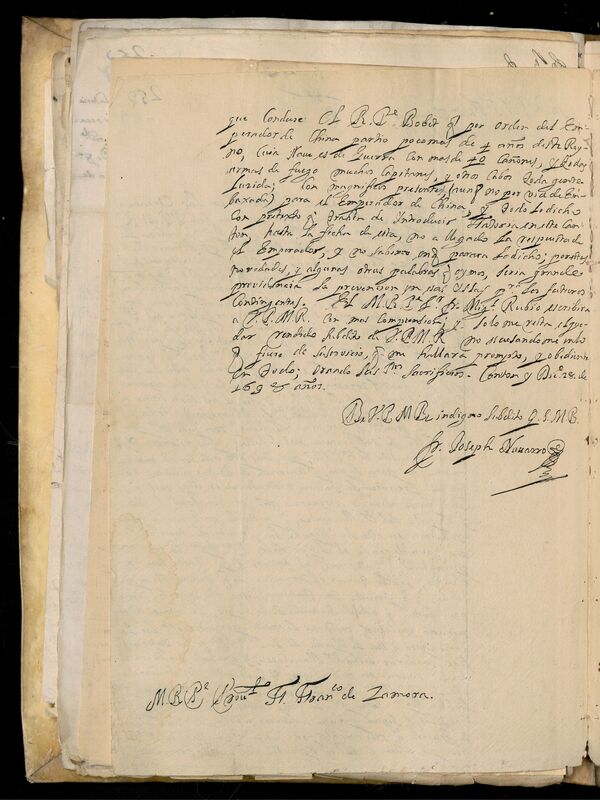 que conduze el R. P.e Bobet q por orden del Em-
perador de China partio poco mas de 4 años deste Rey-
no, cuia Naue es de Guerra con mas de 40 Cañones, y todas
armas de fuego muchos Capitanes, y otros Cabos toda gente
lucida; con magnificos presentes (aunq no por via de Em-
baxada) para el Emperador de China, y todo lo dicho
con pretexto q trata de introducir Fatoria en este Can-
ton, hasta la fecha de esta, no a llegado la respuesta de
el Emperador, y no sabemos en q parara lo dicho; por estas
novedades, y algunas otras palabras q oymos, seria grande
providencia la prevencion en esas Islas p.a los futuros
Contingentes. El M. R. P.e fr. Mig.l Rubio escribira
a V. P. M. R. con mas comprension, y solo me resta el que-
dar rendido subdito de V. P. M. R. no escusandome
de su servicio, q me hallara prompto, y obediente
en todo; orando en sus Sacrificios. Canton y Diz.e 28 de
1698 años.
De V. P. M. R. indigno subdito Q. S. M. B.
fr. Joseph Nauarro
M. R. P.e Prou.l Fr. Fran.co de Zamora.